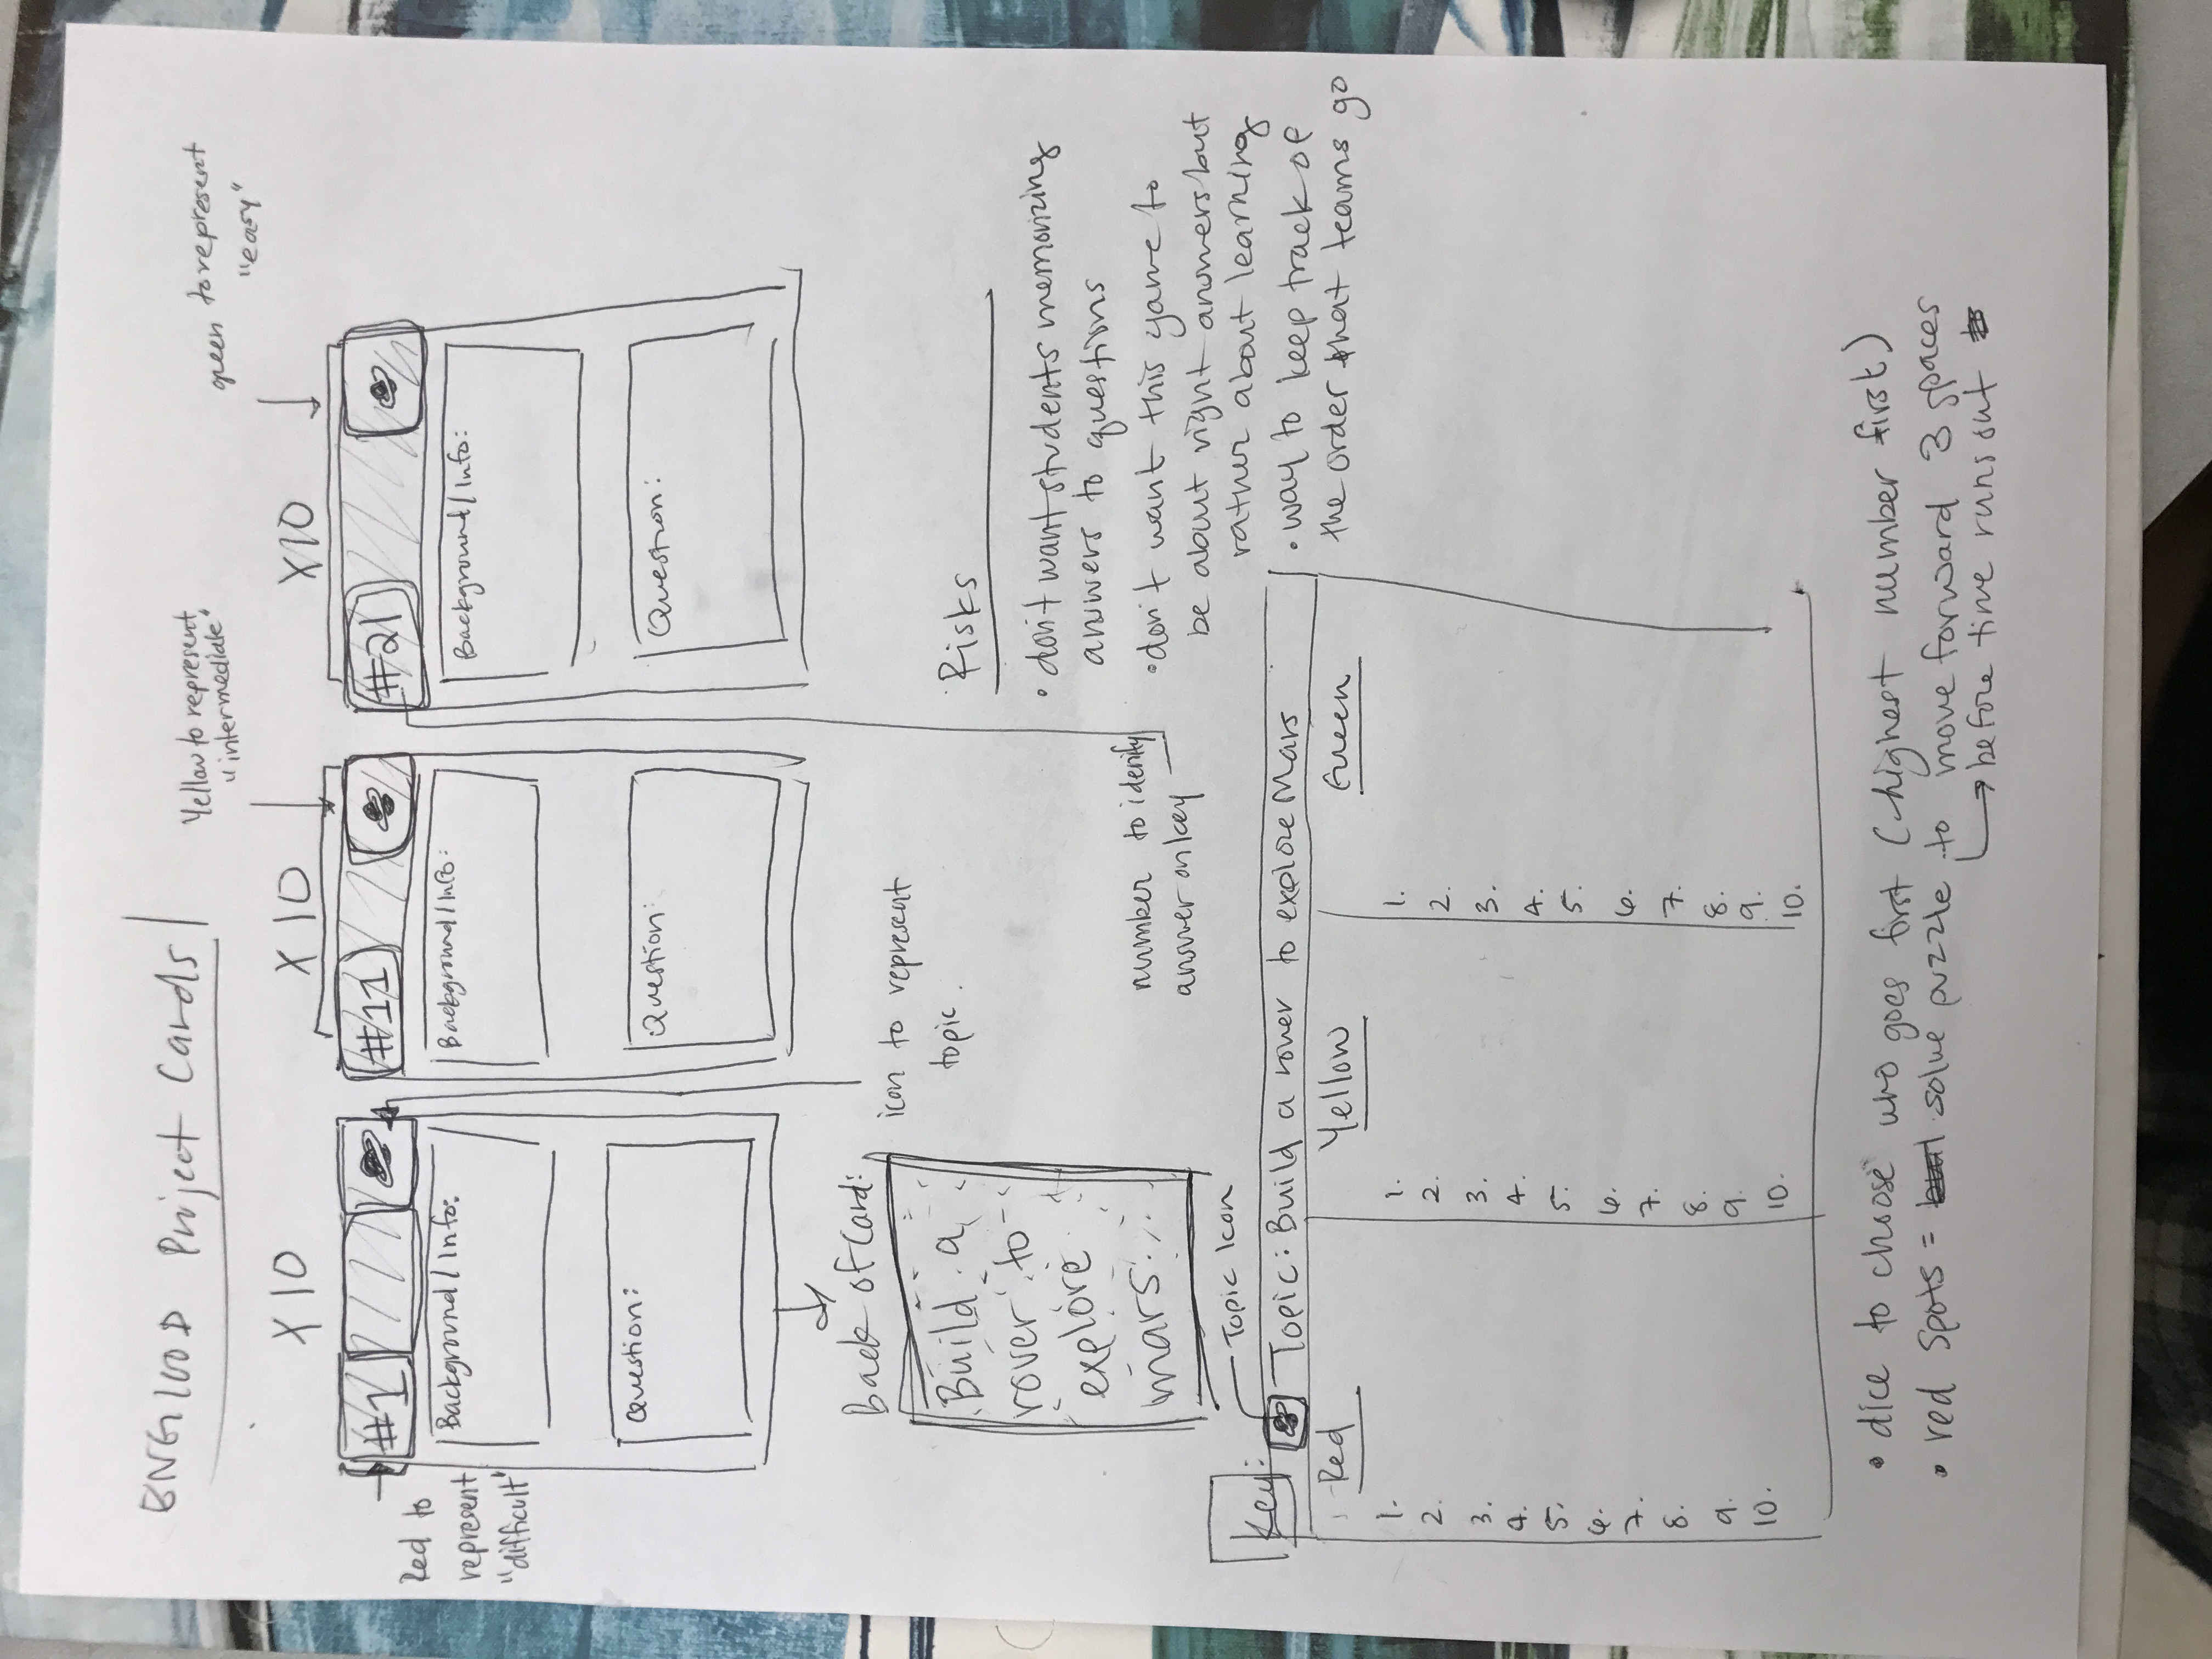 ENG100D Project Cards
Yellow to represent
"intermediate"
green to represent
"easy"
X 10
X 10
X10
Red to
represent
"difficult"
#1
Background / Info:
Question:
#11
Background / Info:
Question:
#21
Background / Info:
Question:
Back of Card:
Build a
rover to
explore
mars
icon to represent
topic.
number to idenify
answer on key
Risks
• don't want students memorizing
answers to questions
• don't want this game to
be about right answers but
rather about learning
• way to keep track of
the order that teams go
Key:
Topic Icon
Topic: Build a rover to explore Mars
Red
1.
2.
3.
4.
5.
6.
7.
8.
9.
10.
Yellow
1.
2.
3.
4.
5.
6.
7.
8.
9.
10.
Green
1.
2.
3.
4.
5.
6.
7.
8.
9.
10.
• dice to choose who goes first (highest number first)
• red spots = solve puzzle to move forward 3 spaces
before time runs out